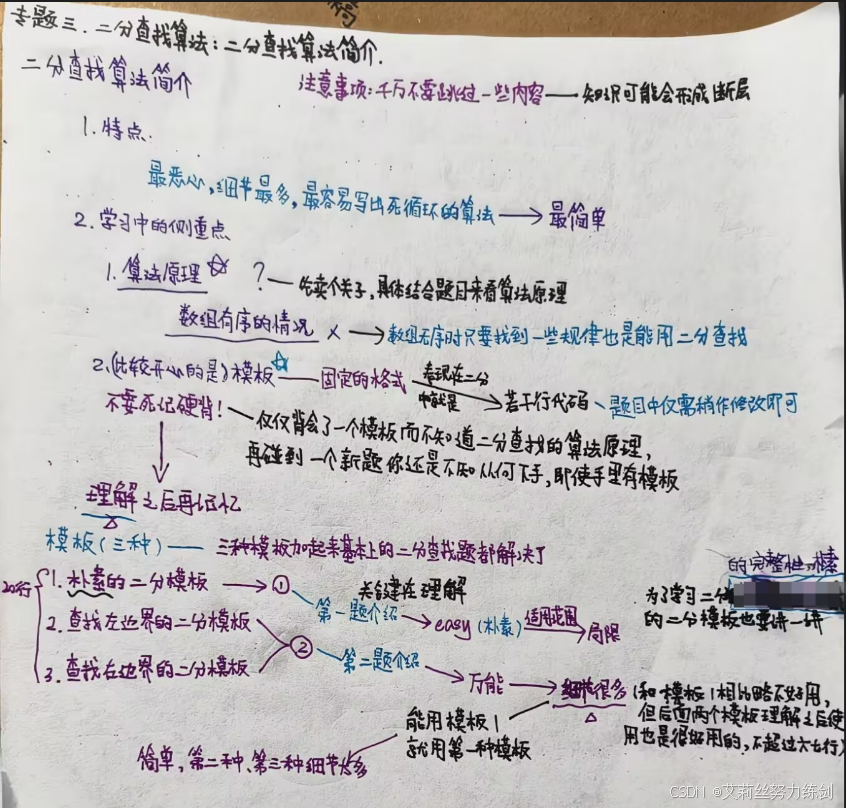 专题三.二分查找算法:二分查找算法简介.
二分查找算法简介
注意事项:千万不要跳过一些内容——知识可能会形成断层
1.特点.
最恶心,细节最多,最容易写出死循环的算法→最简单
2.学习中的侧重点
1.算法原理☆ ?—先卖个关子,具体结合题目来看算法原理
数组有序的情况 × →数组无序时只要找到一些规律也是能用二分查找
2.(比较开心的是)模板☆—固定的格式 表现在二分 中就是→若干行代码、题目中仅需稍作修改即可
不要死记硬背!—仅仅背会了一个模板而不知道二分查找的算法原理,
再碰到一个新题你还是不知从何下手,即使手里有模板
理解之后再记忆
模板(三种)——三种模板加起来基本上的二分查找题都解决了
20行
1.朴素的二分模板→①
关键在理解
第一题介绍→easy(朴素)适用范围→局限
2.查找左边界的二分模板
②第二题介绍→万能→细节很多
3.查找右边界的二分模板
的完整性,朴素
为了学习二分
的二分模板也要讲一讲
(和模板1相比略不好用,
但后面两个模板理解之后使
用也是很好用的,不超过六七行)
能用模板1
就用第一种模板
简单,第二种、第三种细节太多
CSDN @艾莉丝努力练剑